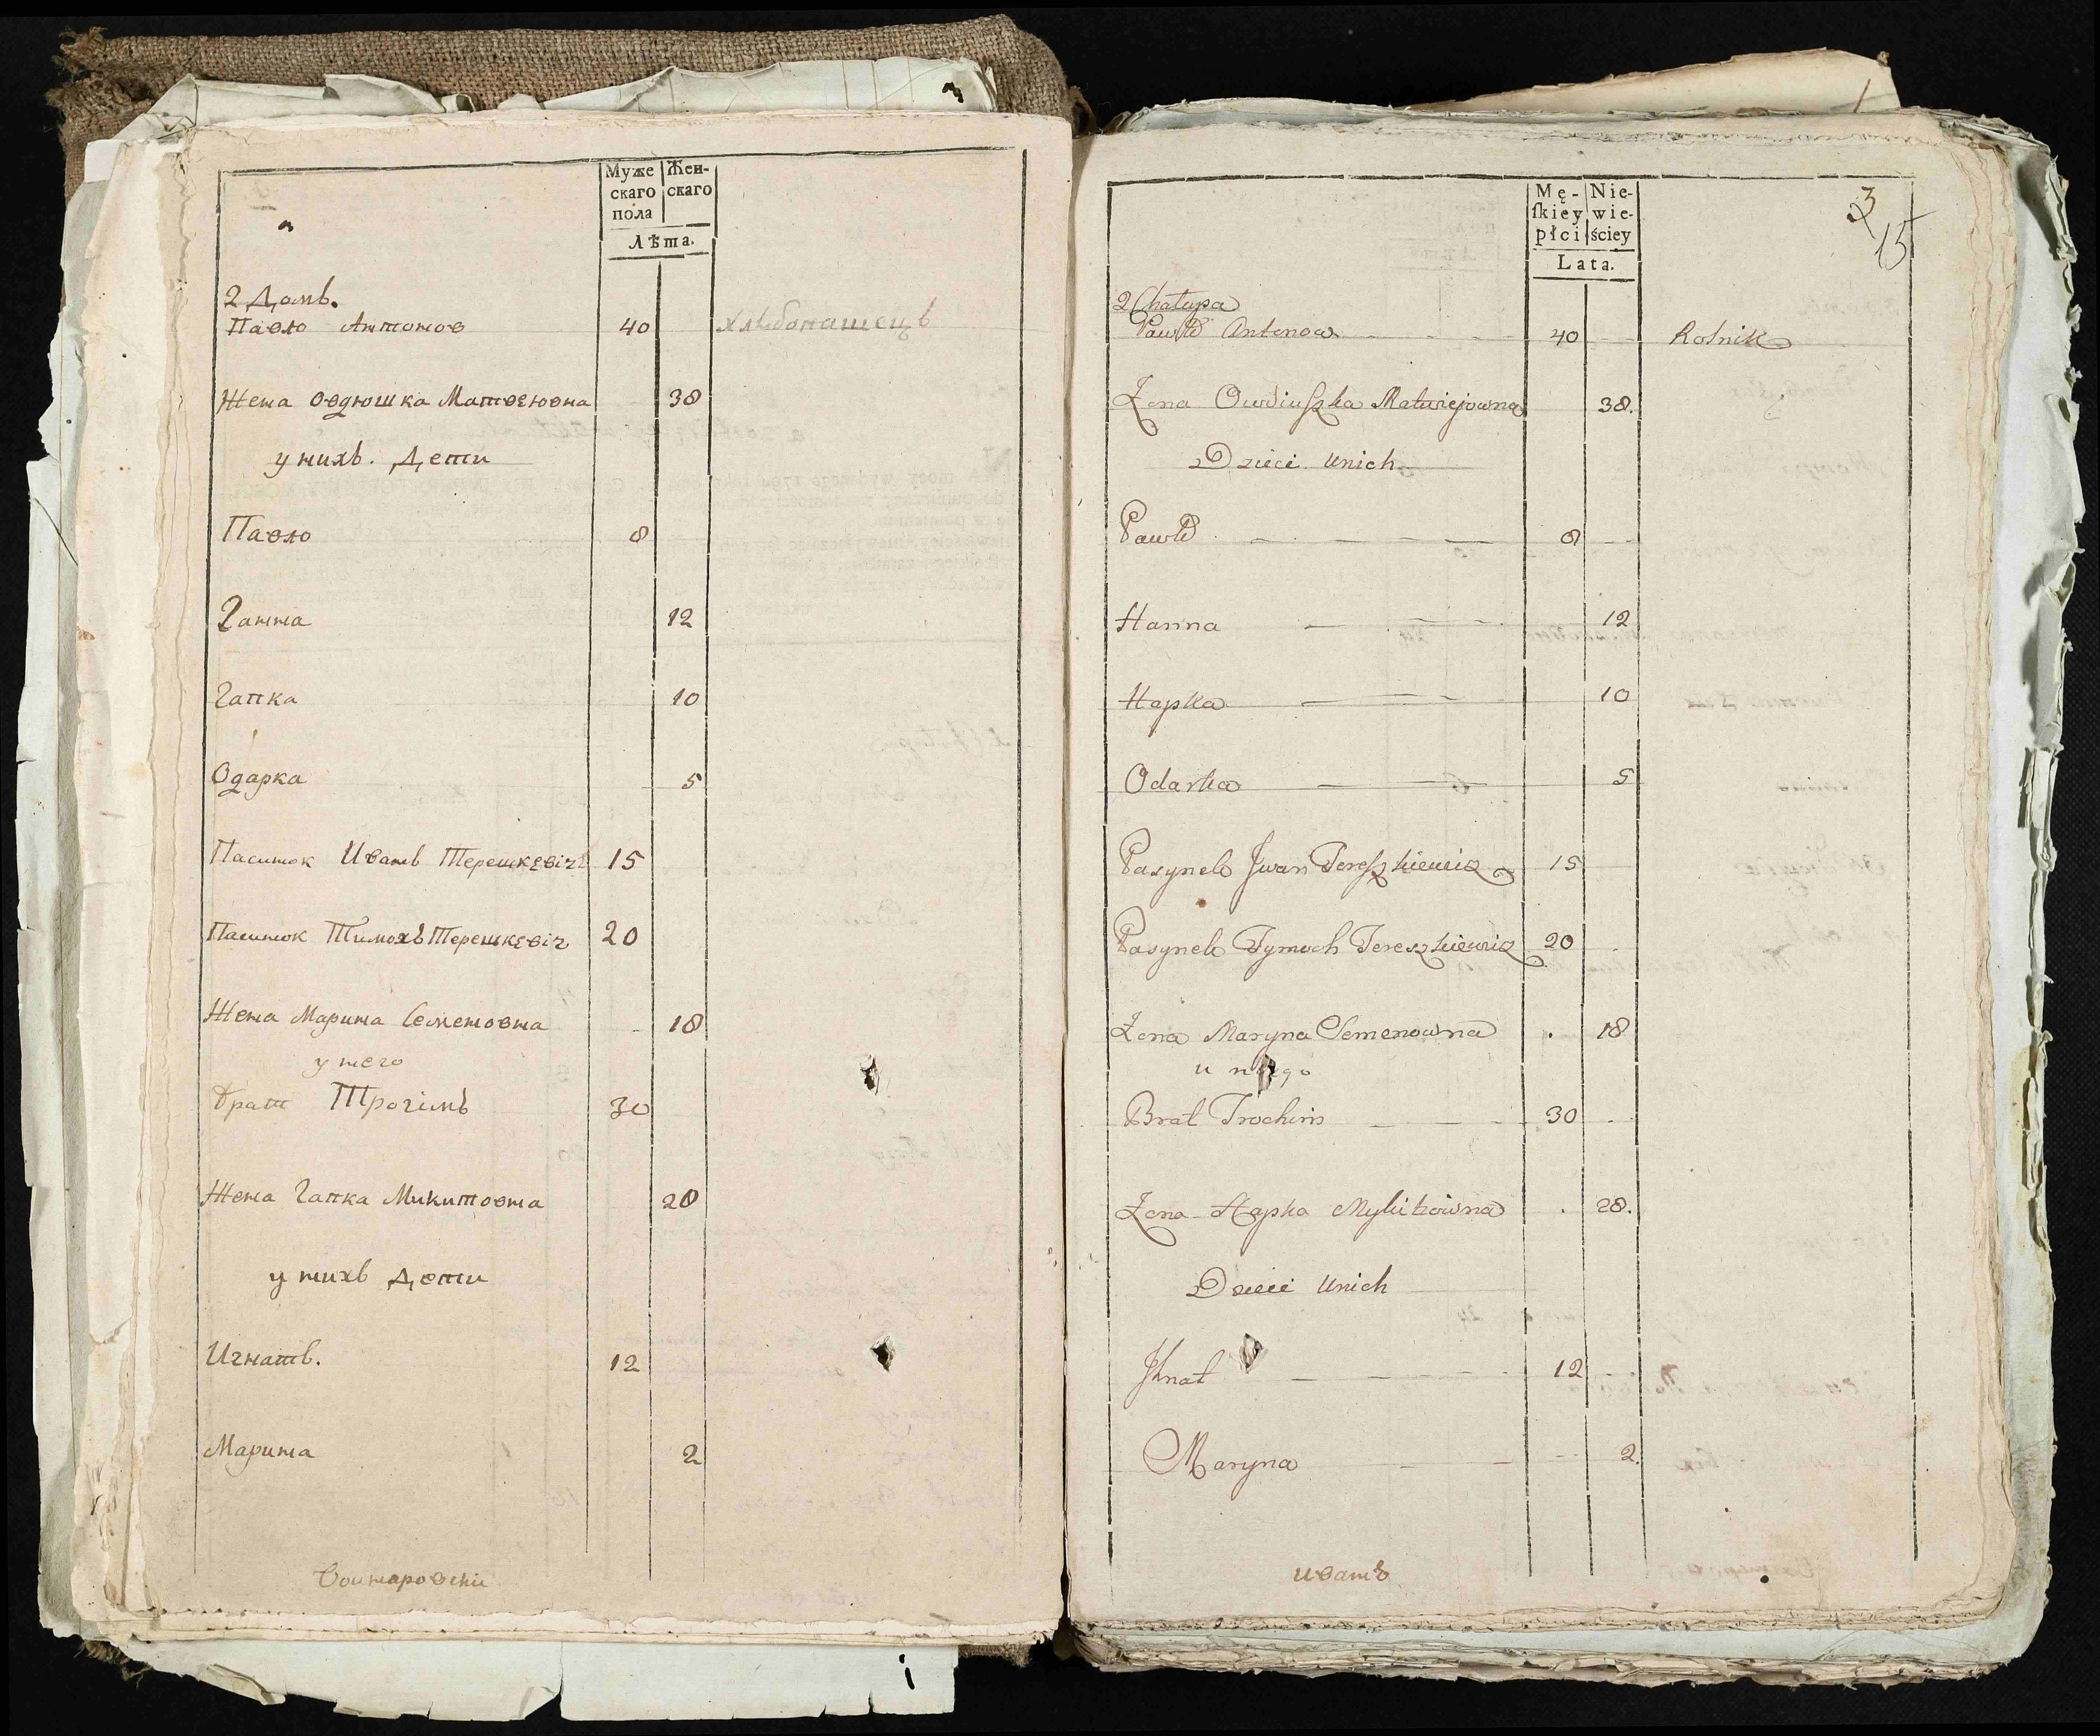 Муже Жен-
скаго скаго
пола
Лѣта.
2 Домъ.
Павло Антонов 40 хлѣбопашецъ
Жена Овдюшка Матвеювна 38
у нихъ. Дети
Павло 8
Ганна 12
Гапка 10
Одарка 5
Пасинок Иванъ Терешкевичъ 15
Пасинок Тимохъ Терешкевіч 20
Жена Марина Семеновна 18
у него
брат Трогімъ 30
Жена Гапка Микитовна 28
у нихъ Дети
Игнатъ. 12
Марина 2
Mę- Nie-
ſkiey wie-
płci ściey
Lata.
3
2
15
2 Chałupa
Pawło Antonow 40 Rolnik
Zona Owdiuszka Matwiejowna 38.
Dzieci unich
Pawło 8
Hanna 12
Hapka 10
Odarka 5
Pasynek Jwan Tereszkiewicz 15
Pasynek Tymoch Tereszkiewicz 20
Zona Maryna Semenowna 18
u niego
Brat Trochim 30
Zona Hapka Mykitowna 28.
Dzieci unich
Jhnat 12
Maryna 2.
иванъ